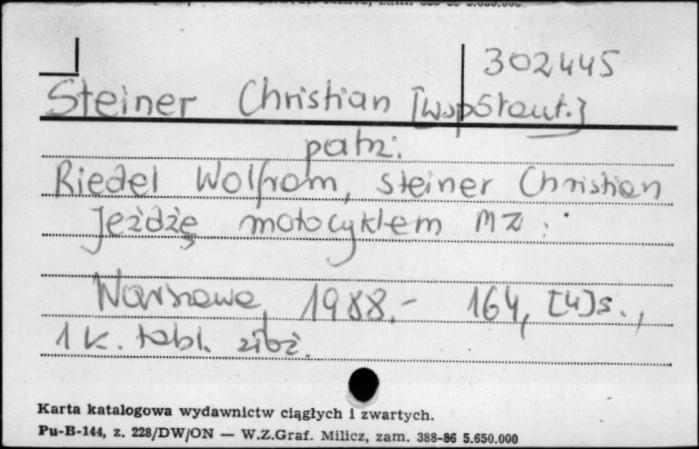 302445
Steiner Christian [współaut.]
patrz:
Riedel Wolfram, Steiner Christian
Jeżdżę motocyklem MZ.
Warszawa, 1988.- 164, [4]s.,
1 k. tabl. zibż.
Karta katalogowa wydawnictw ciągłych i zwartych.
Pu-B-144, z. 228/DW/ON — W.Z.Graf. Milicz, zam. 388-86 5.650.000